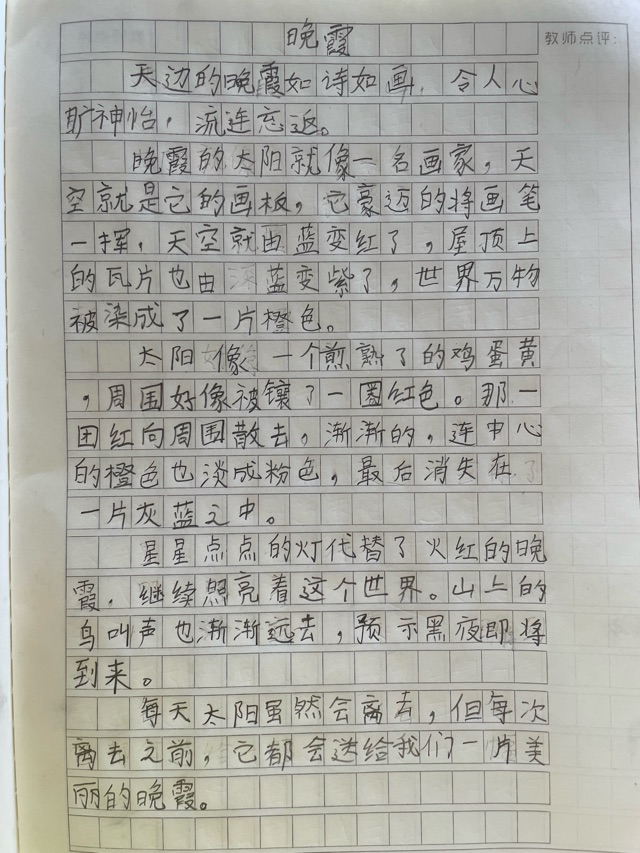 晚霞
教师点评：
天边的晚霞如诗如画，令人心
旷神怡，流连忘返。
晚霞的太阳就像一名画家，天
空就是它的画板，它豪迈的将画笔
一挥，天空就由蓝变红了，屋顶上
的瓦片也由深蓝变紫了，世界万物
被染成了一片橙色。
太阳像一个煎熟了的鸡蛋黄
，周围好像被镶了一圈红色。那一
团红向周围散去，渐渐的，连中心
的橙色也淡成粉色，最后消失在
一片灰蓝之中。
星星点点的灯代替了火红的晚
霞，继续照亮着这个世界。山上的
鸟叫声也渐渐远去，预示黑夜即将
到来。
每天太阳虽然会离去，但每次
离去之前，它都会送给我们一片美
丽的晚霞。